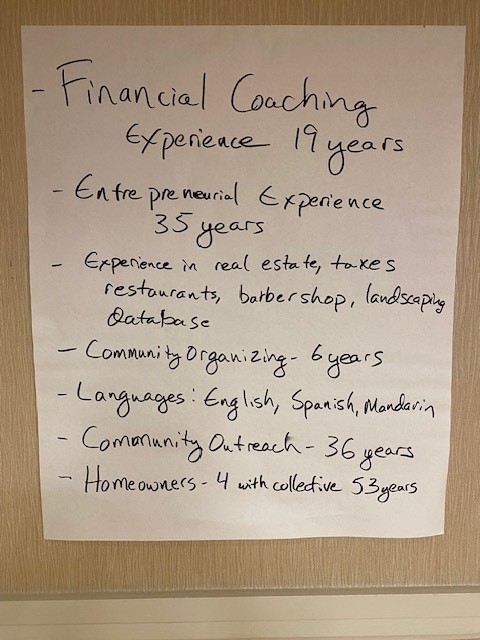 - Financial Coaching
Experience 19 years
- Entrepreneurial Experience
35 years
- Experience in real estate, taxes
restaurants, barbershop, landscaping
Database
- Community Organizing - 6 years
- Languages: English, Spanish, Mandarin
- Community Outreach - 36 years
- Homeowners - 4 with collective 53 years